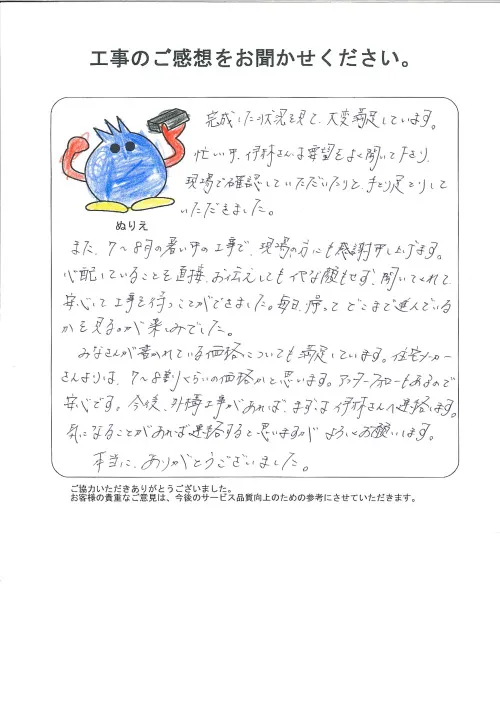 工事のご感想をお聞かせください。
完成した状況を見て、大変満足しています。
忙い中、伊林さんは要望をよく聞いて下さり、
現場で確認していただいたりと、手とり足とりして
いただきました。
ぬりえ
また、7～8月の暑い中の工事で、現場の方にも感謝申し上げます。
心配していることを直接、お伝えしてもイヤな顔もせず、聞いてくれて、
安心して工事を待つことができました。毎日、帰って どこまで進んでいる
かを見るのが楽しみでした。
みなさんが書かれている価格についても満足しています。住宅メーカー
さんよりは、7～8割くらいの価格かと思います。アフターフォローもあるので
安心です。今後、外構工事があれば、まずは伊林さんへ連絡します。
気になることがあれば連絡すると思いますが よろしくお願いします。
本当に、ありがとうございました。
ご協力いただきありがとうございました。
お客様の貴重なご意見は、今後のサービス品質向上のための参考にさせていただきます。